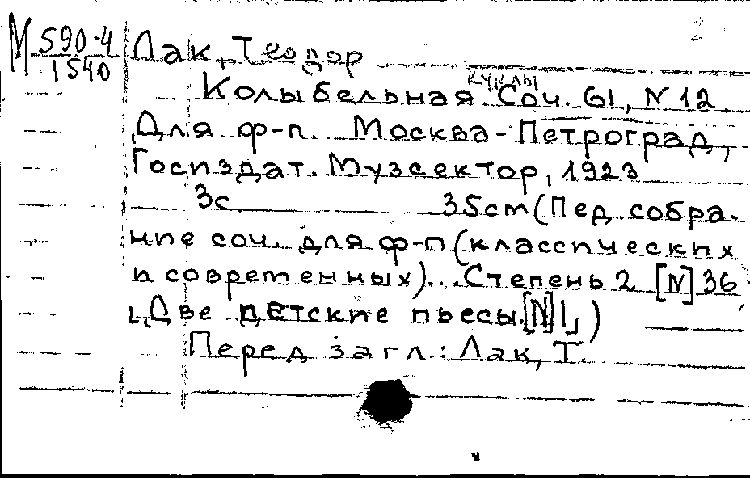 М 590-4 Лак, Теодор
1540
куклы
Колыбельная. Соч. 61, N 12.
Для ф-п. Москва-Петроград,
Госиздат. Музсектор, 1923
3с 35cm (Пед. собра-
ние соч. для ф-п (классических
и современных)... Степень 2 [N] 36
"Две детские пьесы. [N] 1")
Перед загл.: Лак, Т.